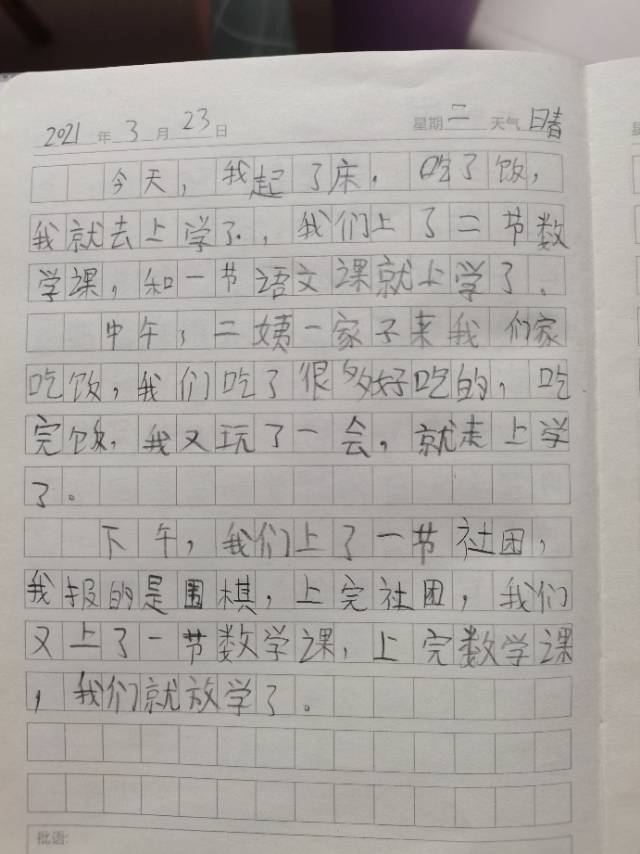 2021年3月23日 星期二 天气日春
今天，我起了床，吃了饭，
我就去上学了.，我们上了二节数
学课，和一节语文课就上学了.
中午，二姨一家子来我们家
吃饭，我们吃了很多好吃的，吃
完饭，我又玩了一会，就走上学
了。
下午，我们上了一节社团，
我报的是围棋，上完社团，我们
又上了一节数学课，上完数学课
，我们就放学了。
批语:
星